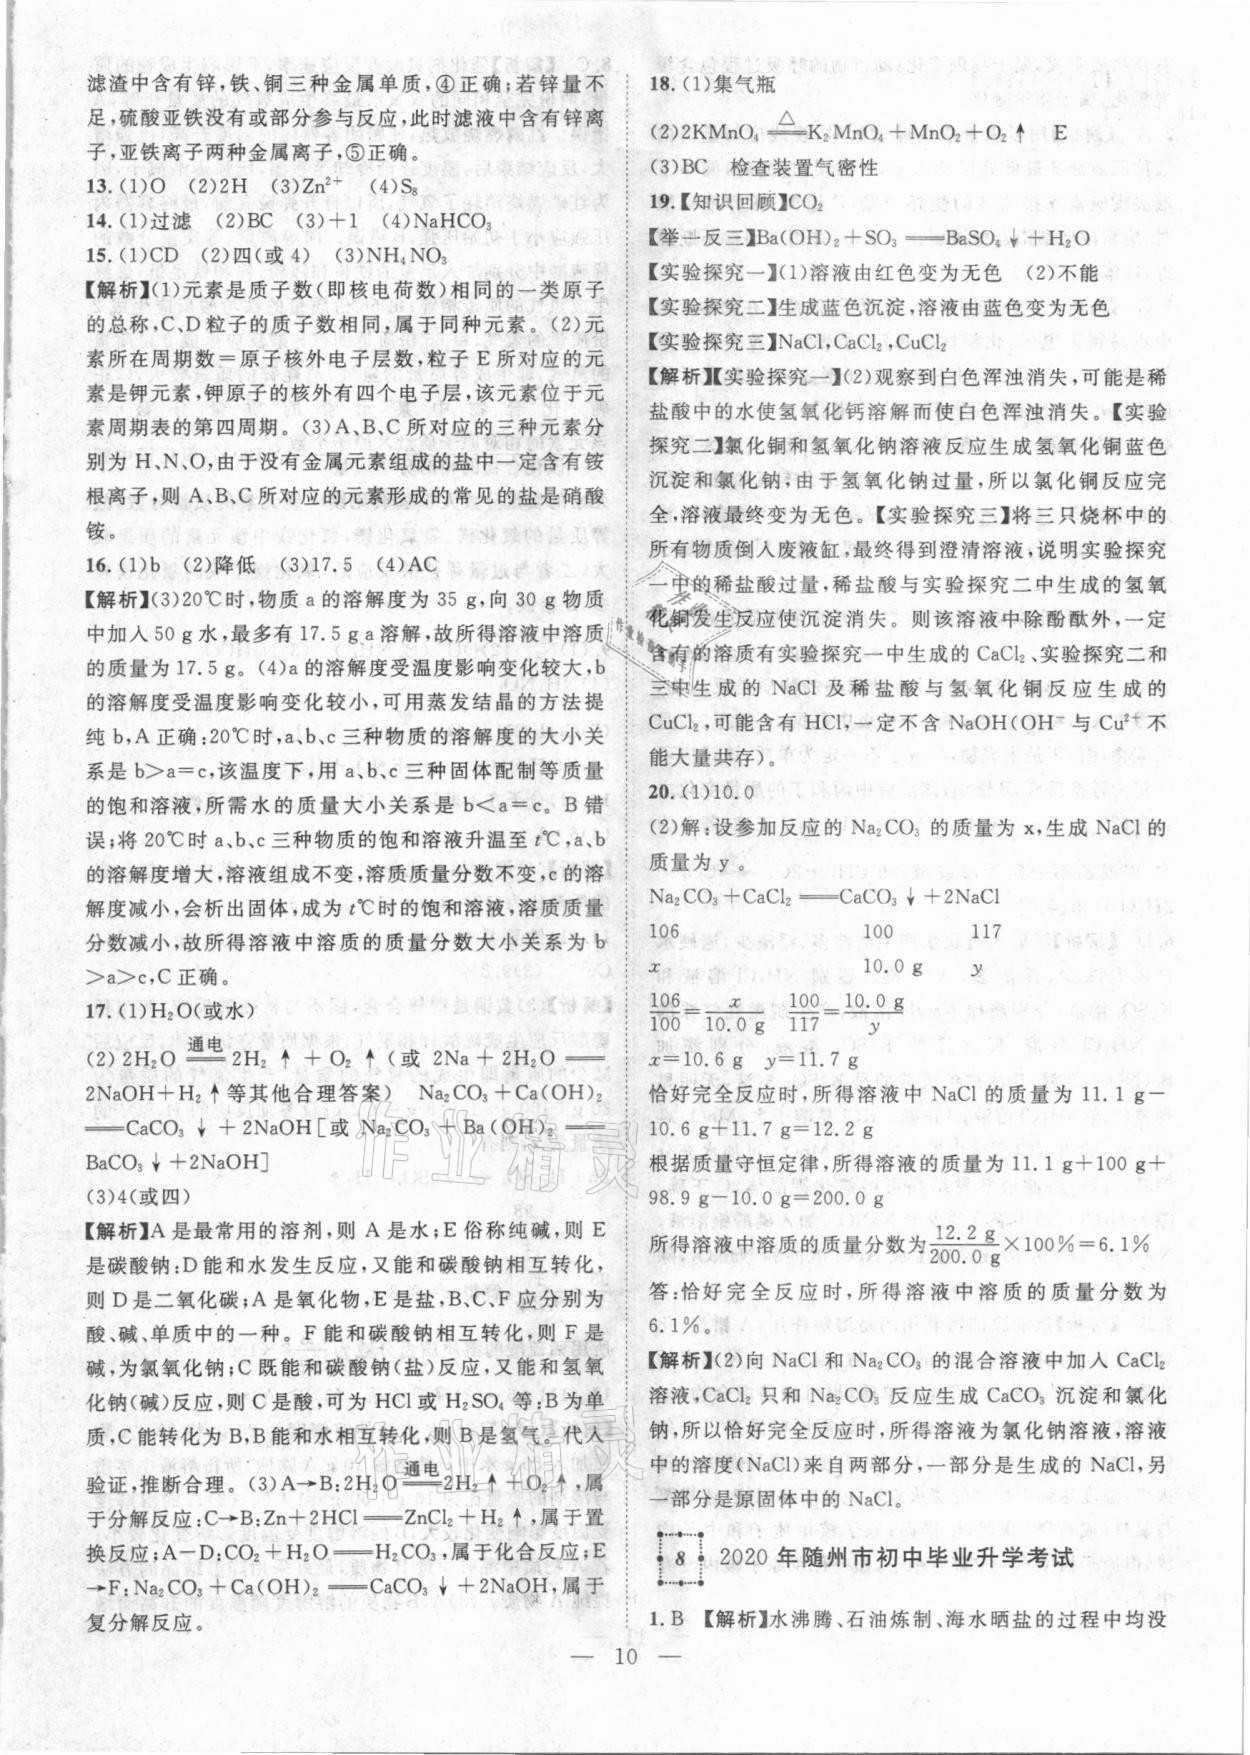 滤渣中含有锌,铁、铜三种金属单质,④正确;若锌量不
足,硫酸亚铁没有或部分参与反应,此时滤液中含有锌离
子,亚铁离子两种金属离子,⑤正确。
13.(1)O (2)2H (3)Zn²⁺ (4)S₈
14.(1)过滤 (2)BC (3)+1 (4)NaHCO₃
15.(1)CD (2)四(或 4) (3)NH₄NO₃
【解析】(1)元素是质子数(即核电荷数)相同的一类原子
的总称,C、D粒子的质子数相同,属于同种元素。(2)元
素所在周期数=原子核外电子层数,粒子 E 所对应的元
素是钾元素,钾原子的核外有四个电子层,该元素位于元
素周期表的第四周期。(3)A、B、C 所对应的三种元素分
别为 H、N、O,由于没有金属元素组成的盐中一定含有铵
根离子,则 A、B、C 所对应的元素形成的常见的盐是硝酸
铵。
16.(1)b (2)降低 (3)17.5 (4)AC
【解析】(3)20℃时,物质 a 的溶解度为 35 g,向 30 g 物质
中加入 50 g 水,最多有 17.5 g a 溶解,故所得溶液中溶质
的质量为 17.5 g。(4)a 的溶解度受温度影响变化较大,b
的溶解度受温度影响变化较小,可用蒸发结晶的方法提
纯 b,A 正确;20℃时,a、b、c 三种物质的溶解度的大小关
系是 b>a=c,该温度下,用 a、b、c 三种固体配制等质量
的饱和溶液,所需水的质量大小关系是 b<a=c。B 错
误;将 20℃时 a、b、c 三种物质的饱和溶液升温至 t℃,a、b
的溶解度增大,溶液组成不变,溶质质量分数不变,c 的溶
解度减小,会析出固体,成为 t℃时的饱和溶液,溶质质量
分数减小,故所得溶液中溶质的质量分数大小关系为 b
>a>c,C 正确。
17.(1)H₂O(或水)
(2) 2H₂O 通电═══ 2H₂ ↑ + O₂ ↑ (或 2Na + 2H₂O ═══
2NaOH+H₂ ↑等其他合理答案) Na₂CO₃+Ca(OH)₂
═══CaCO₃ ↓+2NaOH[或 Na₂CO₃+Ba(OH)₂═══
BaCO₃ ↓+2NaOH]
(3)4(或四)
【解析】A 是最常用的溶剂,则 A 是水;E 俗称纯碱,则 E
是碳酸钠;D 能和水发生反应,又能和碳酸钠相互转化,
则 D 是二氧化碳;A 是氧化物,E 是盐,B、C、F 应分别为
酸、碱、单质中的一种。F 能和碳酸钠相互转化,则 F 是
碱,为氢氧化钠;C 既能和碳酸钠(盐)反应,又能和氢氧
化钠(碱)反应,则 C 是酸,可为 HCl 或 H₂SO₄ 等;B 为单
质,C 能转化为 B,B 能和水相互转化,则 B 是氢气。代入
验证,推断合理。(3)A→B:2H₂O 通电═══ 2H₂ ↑+O₂ ↑,属
于分解反应;C→B:Zn+2HCl═══ZnCl₂+H₂ ↑,属于置
换反应;A—D:CO₂+H₂O═══H₂CO₃,属于化合反应;E
→F:Na₂CO₃+Ca(OH)₂═══CaCO₃ ↓+2NaOH,属于
复分解反应。
18.(1)集气瓶
(2)2KMnO₄ △═══ K₂MnO₄+MnO₂+O₂ ↑ E
(3)BC 检查装置气密性
19.【知识回顾】CO₂
【举一反三】Ba(OH)₂+SO₃═══BaSO₄ ↓+H₂O
【实验探究一】(1)溶液由红色变为无色 (2)不能
【实验探究二】生成蓝色沉淀,溶液由蓝色变为无色
【实验探究三】NaCl,CaCl₂,CuCl₂
【解析】【实验探究一】(2)观察到白色浑浊消失,可能是稀
盐酸中的水使氢氧化钙溶解而使白色浑浊消失。【实验
探究二】氯化铜和氢氧化钠溶液反应生成氢氧化铜蓝色
沉淀和氯化钠,由于氢氧化钠过量,所以氯化铜反应完
全,溶液最终变为无色。【实验探究三】将三只烧杯中的
所有物质倒入废液缸,最终得到澄清溶液,说明实验探究
一中的稀盐酸过量,稀盐酸与实验探究二中生成的氢氧
化铜发生反应使沉淀消失。则该溶液中除酚酞外,一定
含有的溶质有实验探究一中生成的 CaCl₂、实验探究二和
三中生成的 NaCl 及稀盐酸与氢氧化铜反应生成的
CuCl₂,可能含有 HCl,一定不含 NaOH(OH⁻ 与 Cu²⁺ 不
能大量共存)。
20.(1)10.0
(2)解:设参加反应的 Na₂CO₃ 的质量为 x,生成 NaCl 的
质量为 y。
Na₂CO₃+CaCl₂═══CaCO₃ ↓+2NaCl
106 100 117
x 10.0 g y
106/100=x/10.0 g 100/117=10.0 g/y
x=10.6 g y=11.7 g
恰好完全反应时,所得溶液中 NaCl 的质量为 11.1 g−
10.6 g+11.7 g=12.2 g
根据质量守恒定律,所得溶液的质量为 11.1 g+100 g+
98.9 g−10.0 g=200.0 g
所得溶液中溶质的质量分数为12.2 g/200.0 g×100%=6.1%
答:恰好完全反应时,所得溶液中溶质的质量分数为
6.1%。
【解析】(2)向 NaCl 和 Na₂CO₃ 的混合溶液中加入 CaCl₂
溶液,CaCl₂ 只和 Na₂CO₃ 反应生成 CaCO₃ 沉淀和氯化
钠,所以恰好完全反应时,所得溶液为氯化钠溶液,溶液
中的溶度(NaCl)来自两部分,一部分是生成的 NaCl,另
一部分是原固体中的 NaCl。
8 2020 年随州市初中毕业升学考试
1.B 【解析】水沸腾、石油炼制、海水晒盐的过程中均没
— 10 —
作业精灵
作业精灵